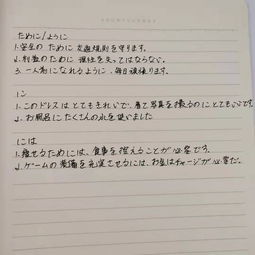 ために/ように
1.安全の ために 交通規則を守ります。
2.利益のために 理性を失ってはならない。
3.一人前になれるように、毎日頑張ります。
に
1.このドレスはとてもきれいで、着て写真を撮るのにとてもいいです
2.お風呂にたくさんの水を使いました
には
1.痩せるためには、食事を控えることが必要です。
2.ゲームの装備を充実させるには、お金チャージが必要だ。